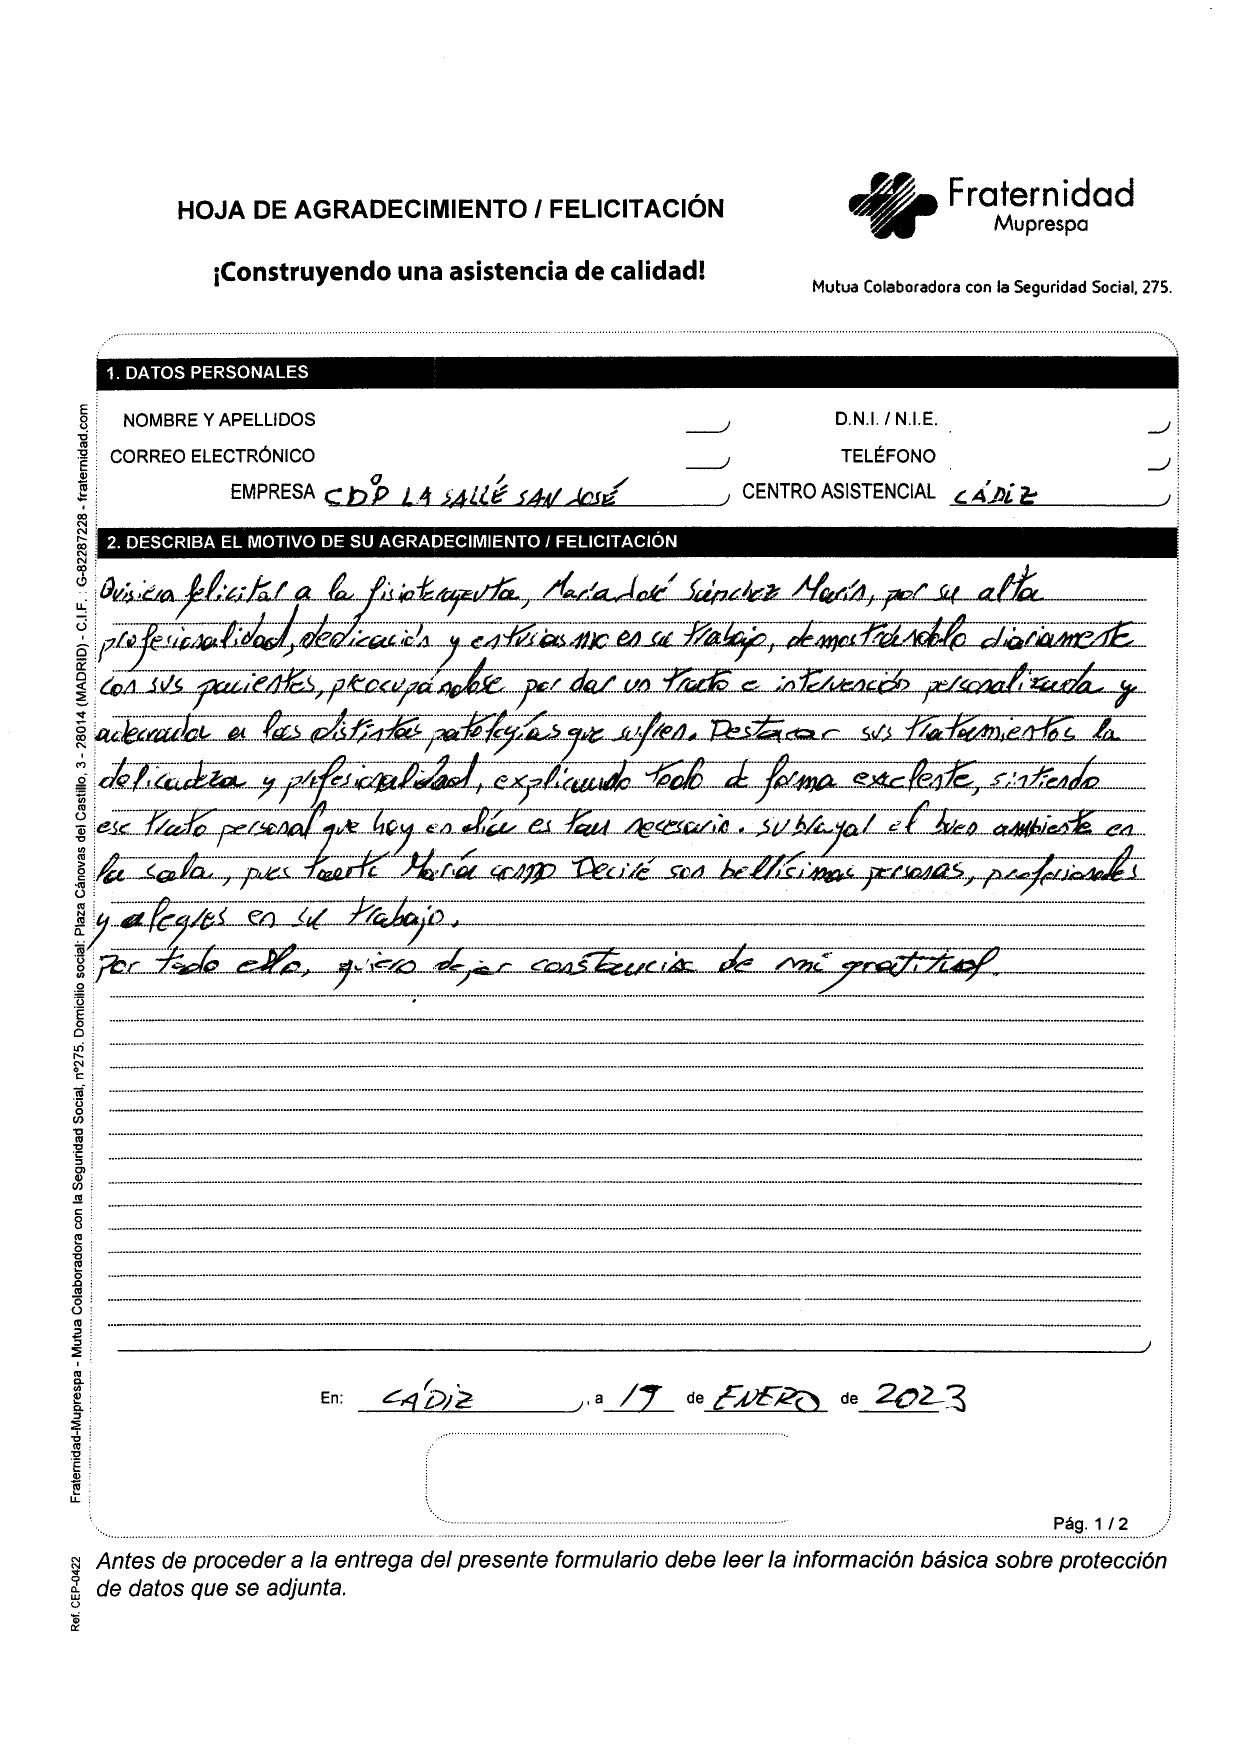 HOJA DE AGRADECIMIENTO / FELICITACIÓN
¡Construyendo una asistencia de calidad!
Fraternidad
Muprespa
Mutua Colaboradora con la Seguridad Social, 275.
1. DATOS PERSONALES
NOMBRE Y APELLIDOS
D.N.I. / N.I.E.
CORREO ELECTRÓNICO
TELÉFONO
EMPRESA CDP LA SALLE SAN JOSÉ
CENTRO ASISTENCIAL CÁDIZ
2. DESCRIBA EL MOTIVO DE SU AGRADECIMIENTO / FELICITACIÓN
Quisiera felicitar a la fisioterapeuta, María José Sánchez Marín, por su alta
profesionalidad, dedicación y entusiasmo en su trabajo, demostrándolo diariamente
con sus pacientes, preocupándose por dar un trato e intervención personalizada y
adecuada a las distintas patologías que sufren. Destacar sus tratamientos la
delicadeza y profesionalidad, explicando todo de forma excelente, sintiendo
ese trato personal que hoy en día es tan necesario. Subrayar el buen ambiente en
la sala, pues tanto María como son bellísimas personas, profesionales
y alegres en su trabajo.
Por todo ello, quiero dejar constancia de mi gratitud.
En: CÁDIZ, a 19 de ENERO de 2023
Pág. 1 / 2
Antes de proceder a la entrega del presente formulario debe leer la información básica sobre protección
de datos que se adjunta.
Fraternidad-Muprespa - Mutua Colaboradora con la Seguridad Social, nº275. Domicilio social: Plaza Cánovas del Castillo, 3 - 28014 (MADRID) - C.I.F. : G-82287228 - fraternidad.com
Ref. CEP-0422